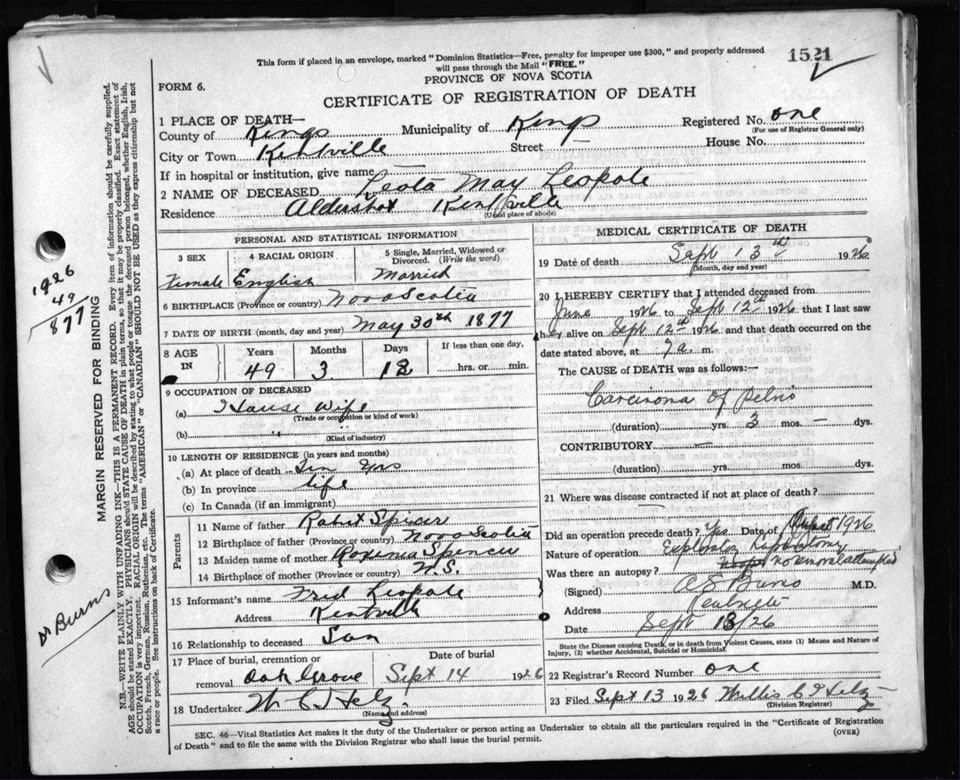 This form if placed in an envelope, marked "Dominion Statistics—Free, penalty for improper use $300," and properly addressed
will pass through the Mail "FREE."
1521
PROVINCE OF NOVA SCOTIA
FORM 6.
CERTIFICATE OF REGISTRATION OF DEATH
1 PLACE OF DEATH—
Registered No. one
(For use of Registrar General only)
County of Kings Municipality of Kings
City or Town Kentville Street — House No.
If in hospital or institution, give name —
2 NAME OF DECEASED Leota May Leopole
Residence Aldershot Kentville
(Usual place of abode)
PERSONAL AND STATISTICAL INFORMATION
3 SEX 4 RACIAL ORIGIN 5 Single, Married, Widowed or Divorced. (Write the word)
Female English Married
6 BIRTHPLACE (Province or country) Nova Scotia
7 DATE OF BIRTH (month, day and year) May 30th 1877
8 AGE IN Years Months Days If less than one day,
49 3 12 hrs. or min.
9 OCCUPATION OF DECEASED
(a) House Wife
(Trade or occupation or kind of work)
(b) "
(Kind of industry)
10 LENGTH OF RESIDENCE (in years and months)
(a) At place of death Yrs
(b) In province life
(c) In Canada (if an immigrant)
Parents
11 Name of father
12 Birthplace of father (Province or country) Nova Scotia
13 Maiden name of mother Spencer
14 Birthplace of mother (Province or country) N.S.
15 Informant's name Fred Leopole
Address Kentville
16 Relationship to deceased Son
17 Place of burial, cremation or removal Date of burial
Oak Grove Sept 14 1926
18 Undertaker
(Name and address)
MEDICAL CERTIFICATE OF DEATH
19 Date of death Sept 13th 1926
(Month, day and year)
20 I HEREBY CERTIFY that I attended deceased from
June 1926 to Sept 12th 1926 that I last saw
her alive on Sept 12th 1926 and that death occurred on the
date stated above, at 7 a. m.
The CAUSE of DEATH was as follows:—
of Pelvis
(duration) yrs. 3 mos. — dys.
CONTRIBUTORY —
(duration) yrs. mos. dys.
21 Where was disease contracted if not at place of death?
Did an operation precede death? Yes Date of 1926
Nature of operation
Was there an autopsy? no removal attempted
(Signed) Burns M.D.
Address Kentville
Date Sept 13/26
State the Disease causing Death, or in death from Violent Causes, state (1) Means and Nature of
Injury, (2) whether Accidental, Suicidal or Homicidal.
22 Registrar's Record Number one
23 Filed Sept 13 1926 Willis
(Division Registrar)
SEC. 46—Vital Statistics Act makes it the duty of the Undertaker or person acting as Undertaker to obtain all the particulars required in the "Certificate of Registration
of Death" and to file the same with the Division Registrar who shall issue the burial permit.
(OVER)
1926
49
877
Dr Burns
MARGIN RESERVED FOR BINDING
N.B.—WRITE PLAINLY WITH UNFADING INK—THIS IS A PERMANENT RECORD. Every item of information should be carefully supplied.
AGE should be stated EXACTLY. PHYSICIANS should STATE CAUSE OF DEATH in plain terms, so that it may be properly classified. Exact statement of
OCCUPATION is very important. RACIAL ORIGIN will be described by stating to what people or tongue the deceased person belonged, whether English, Irish,
Scotch, French, German, Russian, Ruthenian, etc. The terms "AMERICAN" or "CANADIAN" SHOULD NOT BE USED as they express citizenship but not
a race or people. See instructions on back of Certificate.